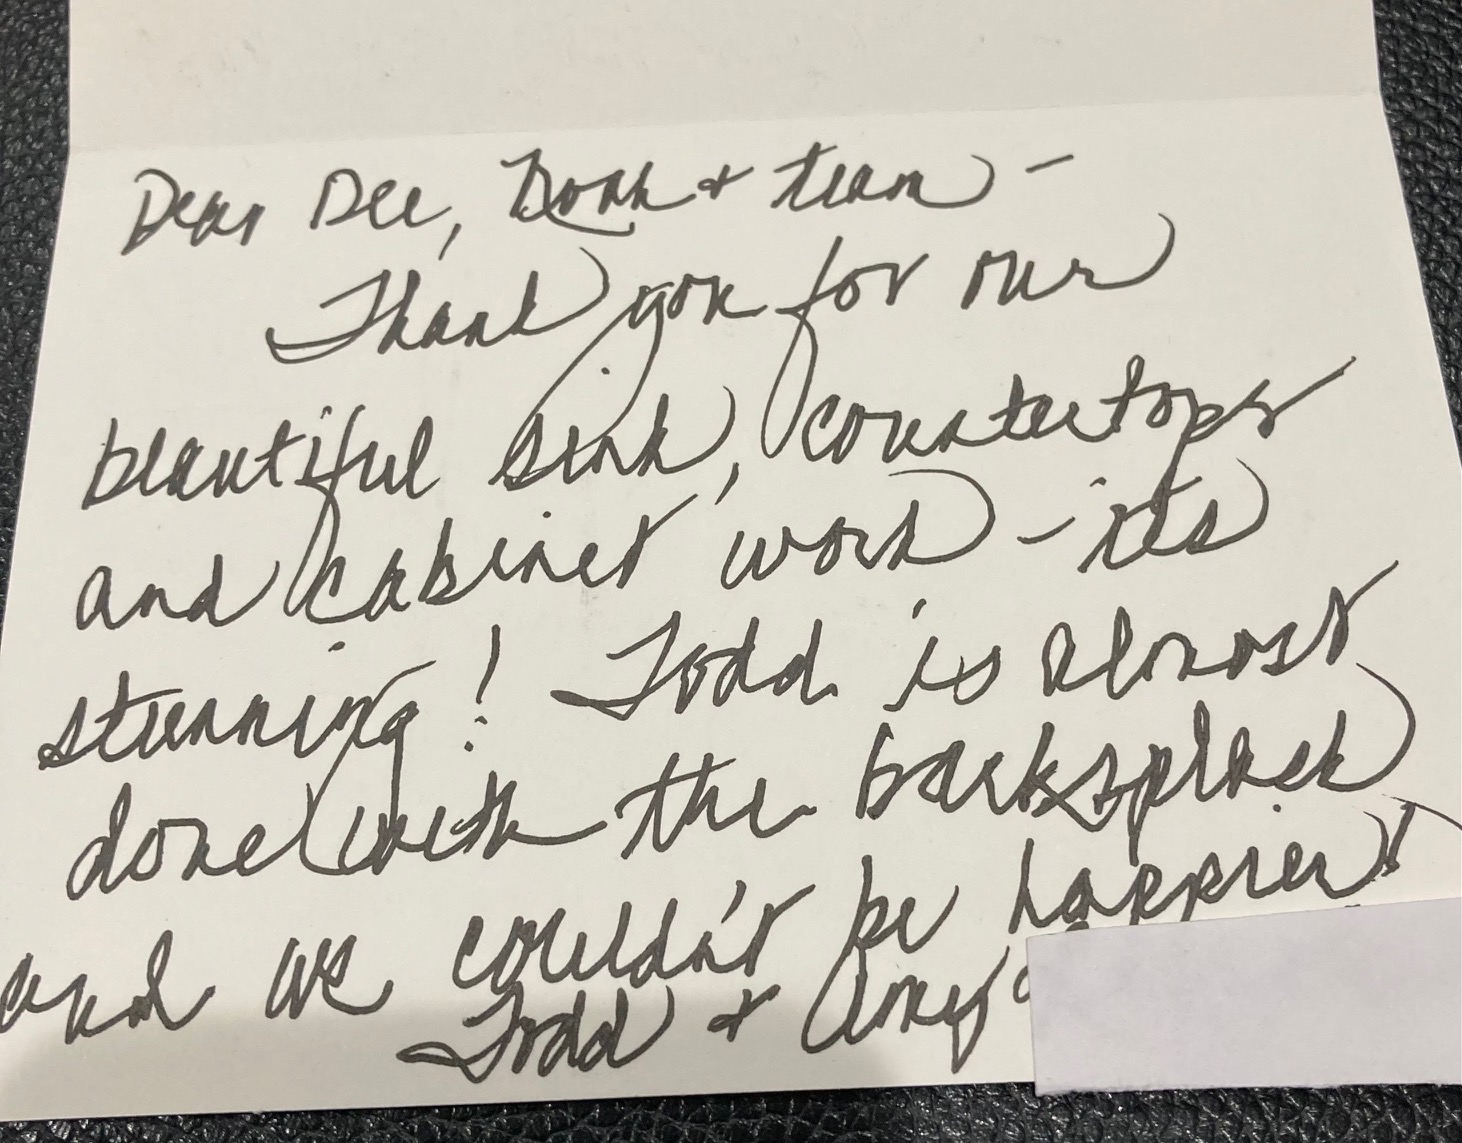 Dear Dee, & team –
Thank you for our
beautiful sink, countertops
and cabinet work – its
stunning! Todd is almost
done with the backsplash
and we couldn't be happier!
Todd & Amy